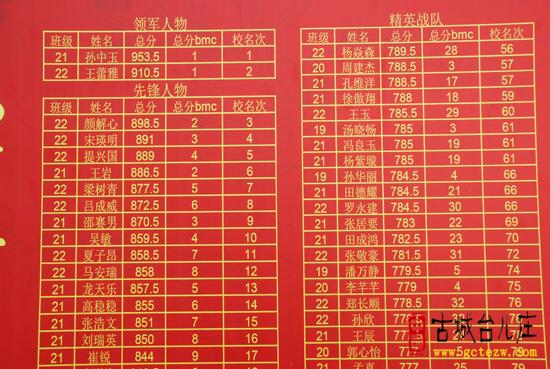 领军人物
班级 姓名 总分 总分bmc 校名次
21 孙中玉 953.5 1 1
22 王蕾雅 910.5 1 2
先锋人物
班级 姓名 总分 总分bmc 校名次
22 颜解心 898.5 2 3
22 宋瑛明 891 3 4
22 提兴国 889 4 5
21 王岩 886.5 2 6
22 梁树青 877.5 5 7
22 吕成威 872.5 6 8
21 邵赛男 870.5 3 9
21 吴敏 859.5 4 10
22 夏子昂 858.5 7 11
22 马安瑞 858 8 12
21 龙天乐 857.5 5 13
21 高稳稳 855 6 14
21 张浩文 851 7 15
21 刘瑞英 850 8 16
21 崔锐 844 9 17
精英战队
班级 姓名 总分 总分bmc 校名次
22 杨焱森 789.5 28 56
20 周建杰 788.5 3 57
21 孔维洋 788.5 17 57
21 徐傲翔 788 18 59
22 王玉 785.5 29 60
19 汤晓畅 785 3 61
21 冯良玉 785 19 61
21 杨紫璇 785 19 61
19 孙华丽 784.5 4 66
21 田德耀 784.5 21 66
22 罗永建 784.5 30 66
21 张居要 783 22 69
21 田成鸿 782.5 23 70
22 张敬豪 781.5 31 72
19 潘万静 779.5 5 74
20 李芊芊 779 4 75
22 郑长顺 778.5 32 76
22 孙欣
21 王辰
20 郭心怡
21 孟喜 777 25 79
古城台儿庄
www.5gctezw.79.com